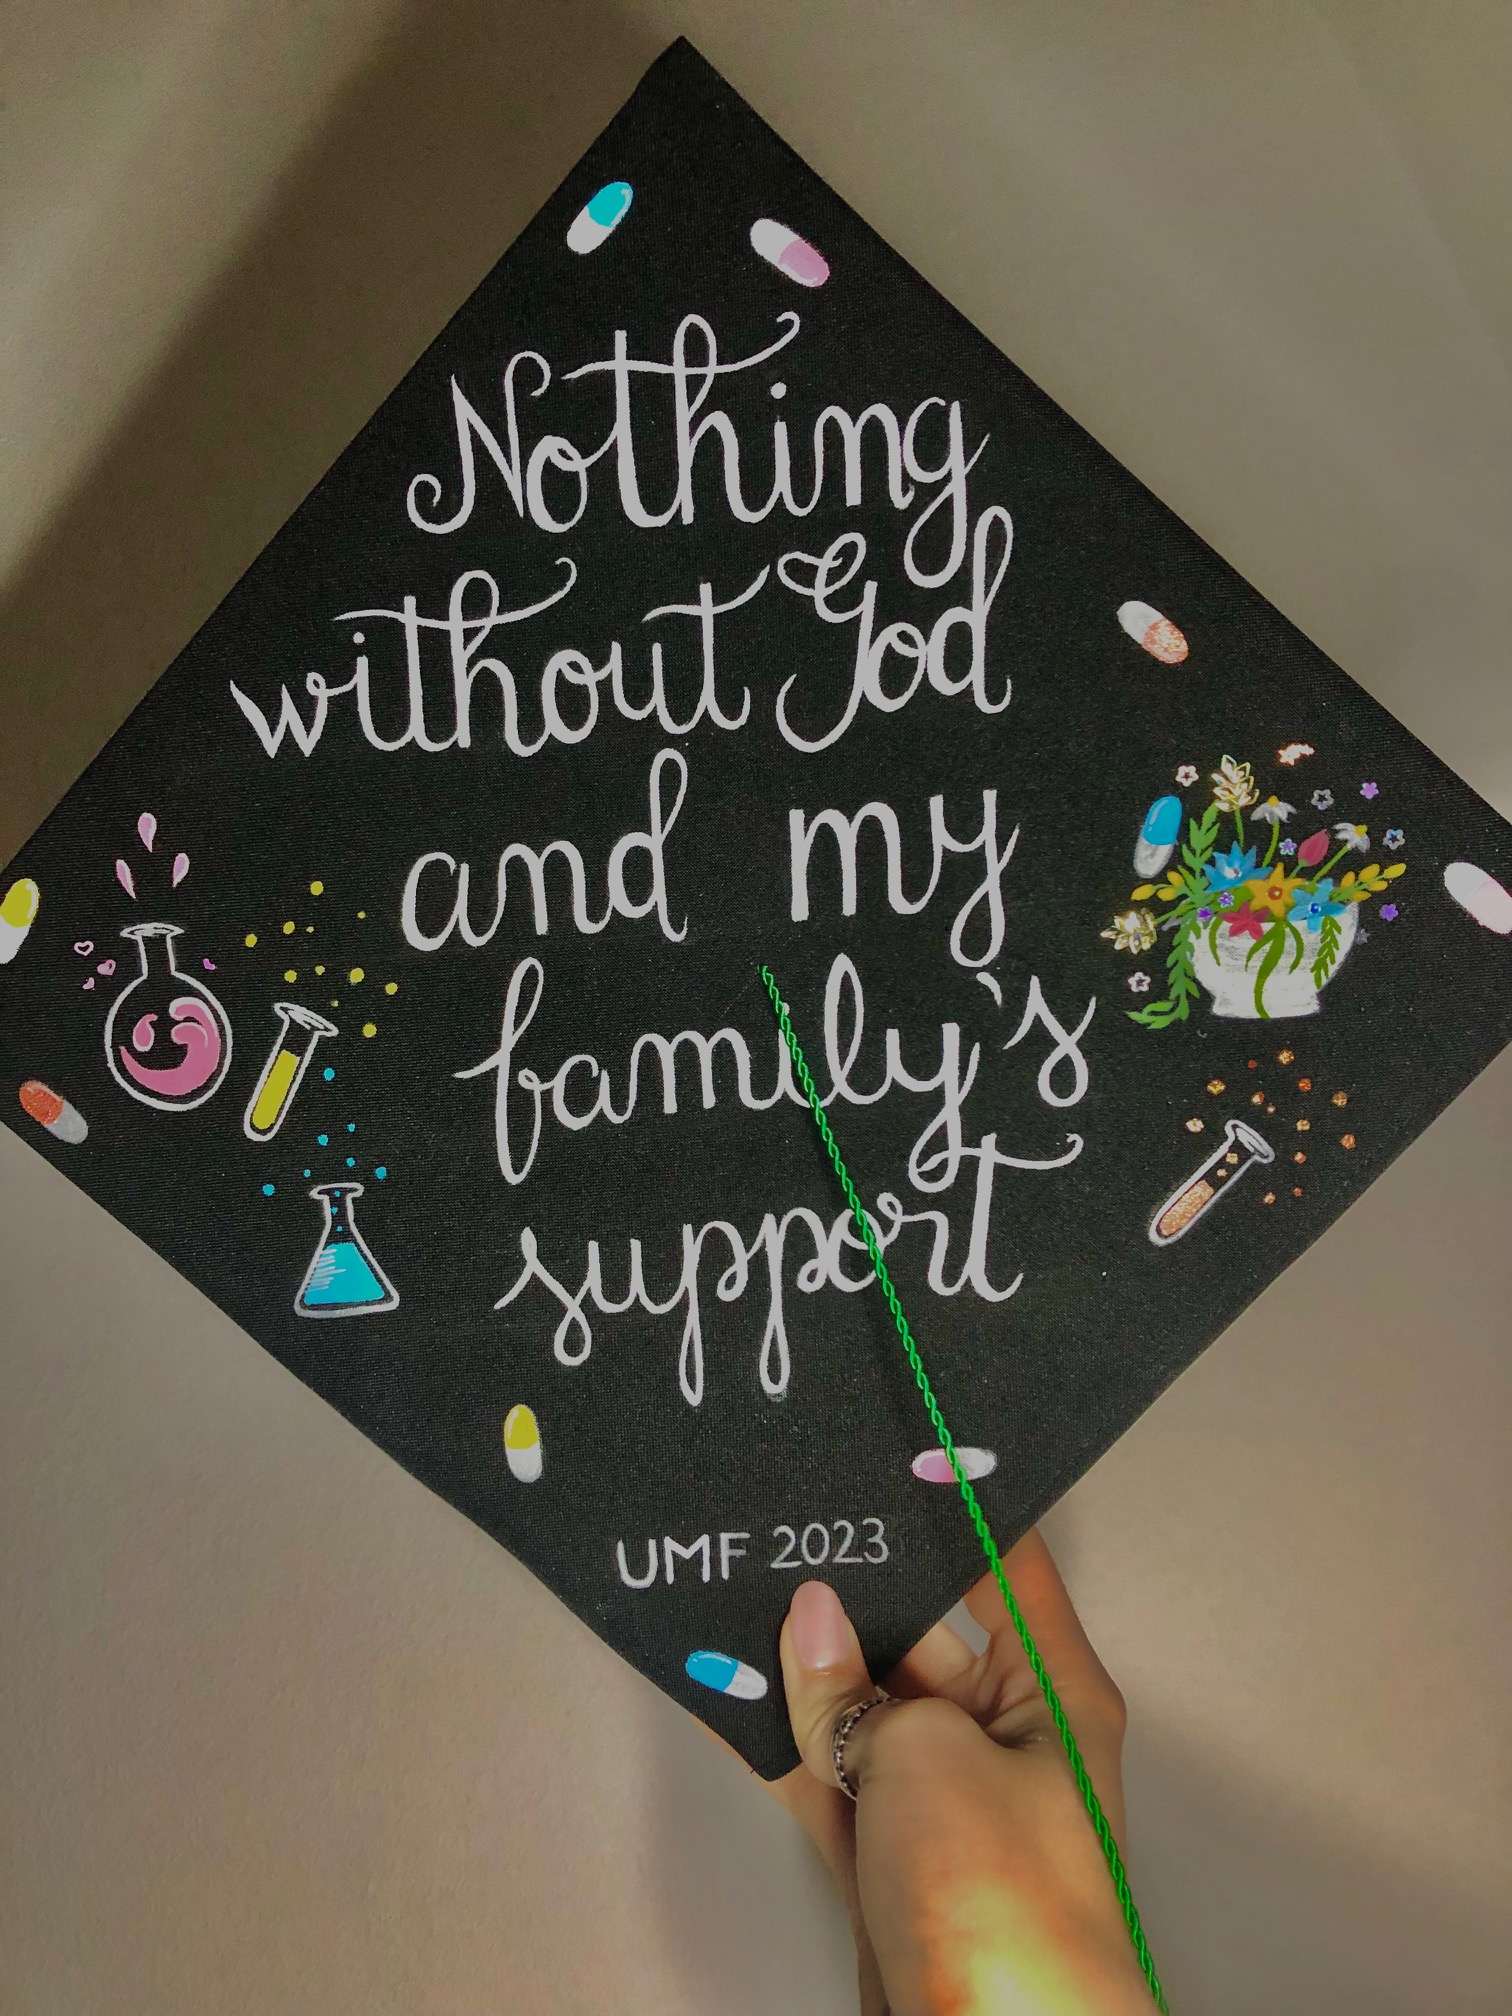 Nothing
without God
and my
family's
support
UMF 2023